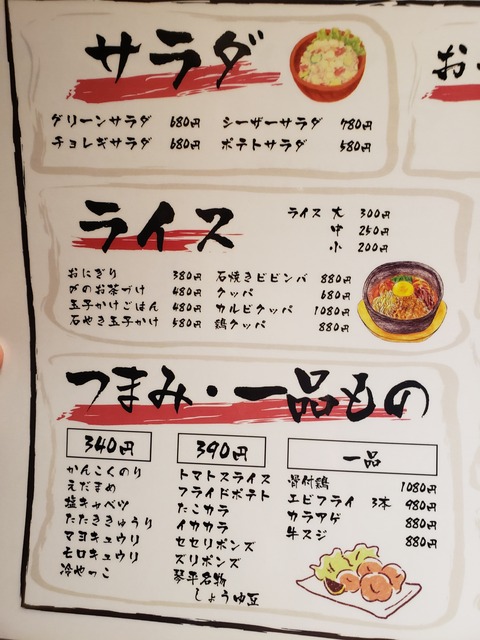 サラダ
グリーンサラダ 680円 シーザーサラダ 780円
チョレギサラダ 680円 ポテトサラダ 580円
お
ライス
ライス 大 300円
中 250円
小 200円
おにぎり 380円 石焼きビビンバ 880円
〆のお茶づけ 480円 クッパ 680円
玉子かけごはん 480円 カルビクッパ 1080円
石やき玉子かけ 580円 鶏クッパ 880円
つまみ・一品もの
340円
かんこくのり
えだまめ
塩キャベツ
たたききゅうり
マヨキュウリ
モロキュウリ
冷やっこ
390円
トマトスライス
フライドポテト
たこカラ
イカカラ
セセリポンズ
ズリポンズ
琴平名物
しょうゆ豆
一品
骨付鶏 1080円
エビフライ 3本 980円
カラアゲ 880円
牛スジ 880円